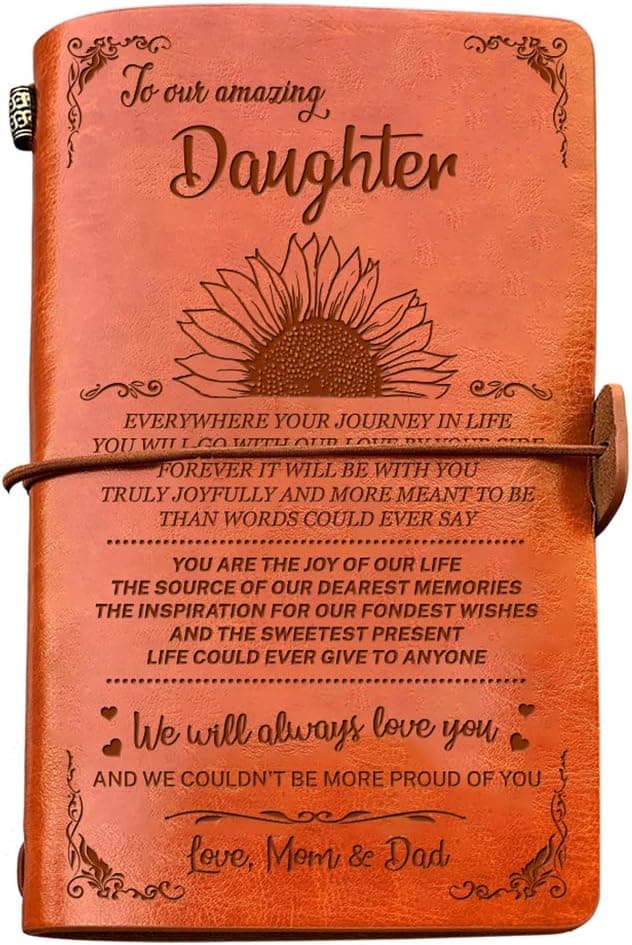 To our amazing
Daughter
EVERYWHERE YOUR JOURNEY IN LIFE
YOU WILL GO WITH OUR LOVE BY YOUR SIDE
FOREVER IT WILL BE WITH YOU
TRULY JOYFULLY AND MORE MEANT TO BE
THAN WORDS COULD EVER SAY
YOU ARE THE JOY OF OUR LIFE
THE SOURCE OF OUR DEAREST MEMORIES
THE INSPIRATION FOR OUR FONDEST WISHES
AND THE SWEETEST PRESENT
LIFE COULD EVER GIVE TO ANYONE
We will always love you
AND WE COULDN'T BE MORE PROUD OF YOU
Love, Mom & Dad